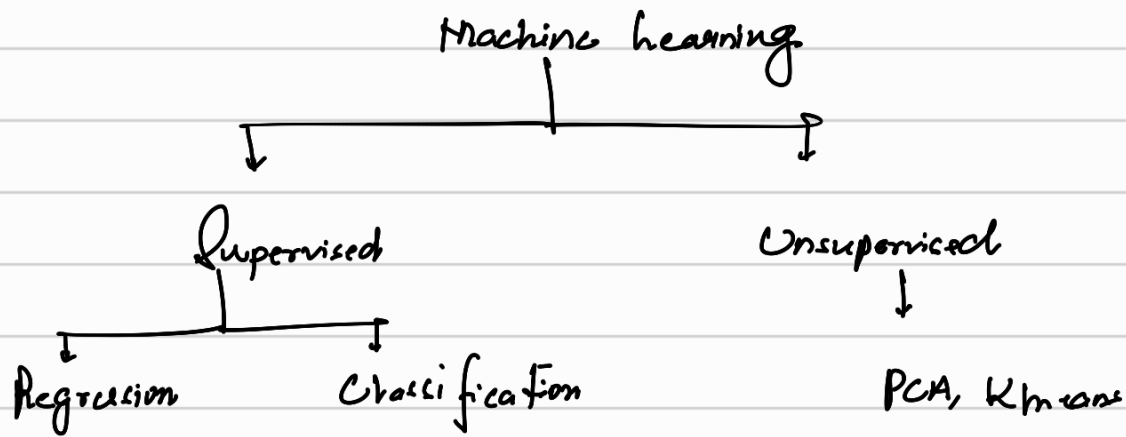 Machine Learning
Supervised Unsupervised
Regression Classification PCA, Kmeans